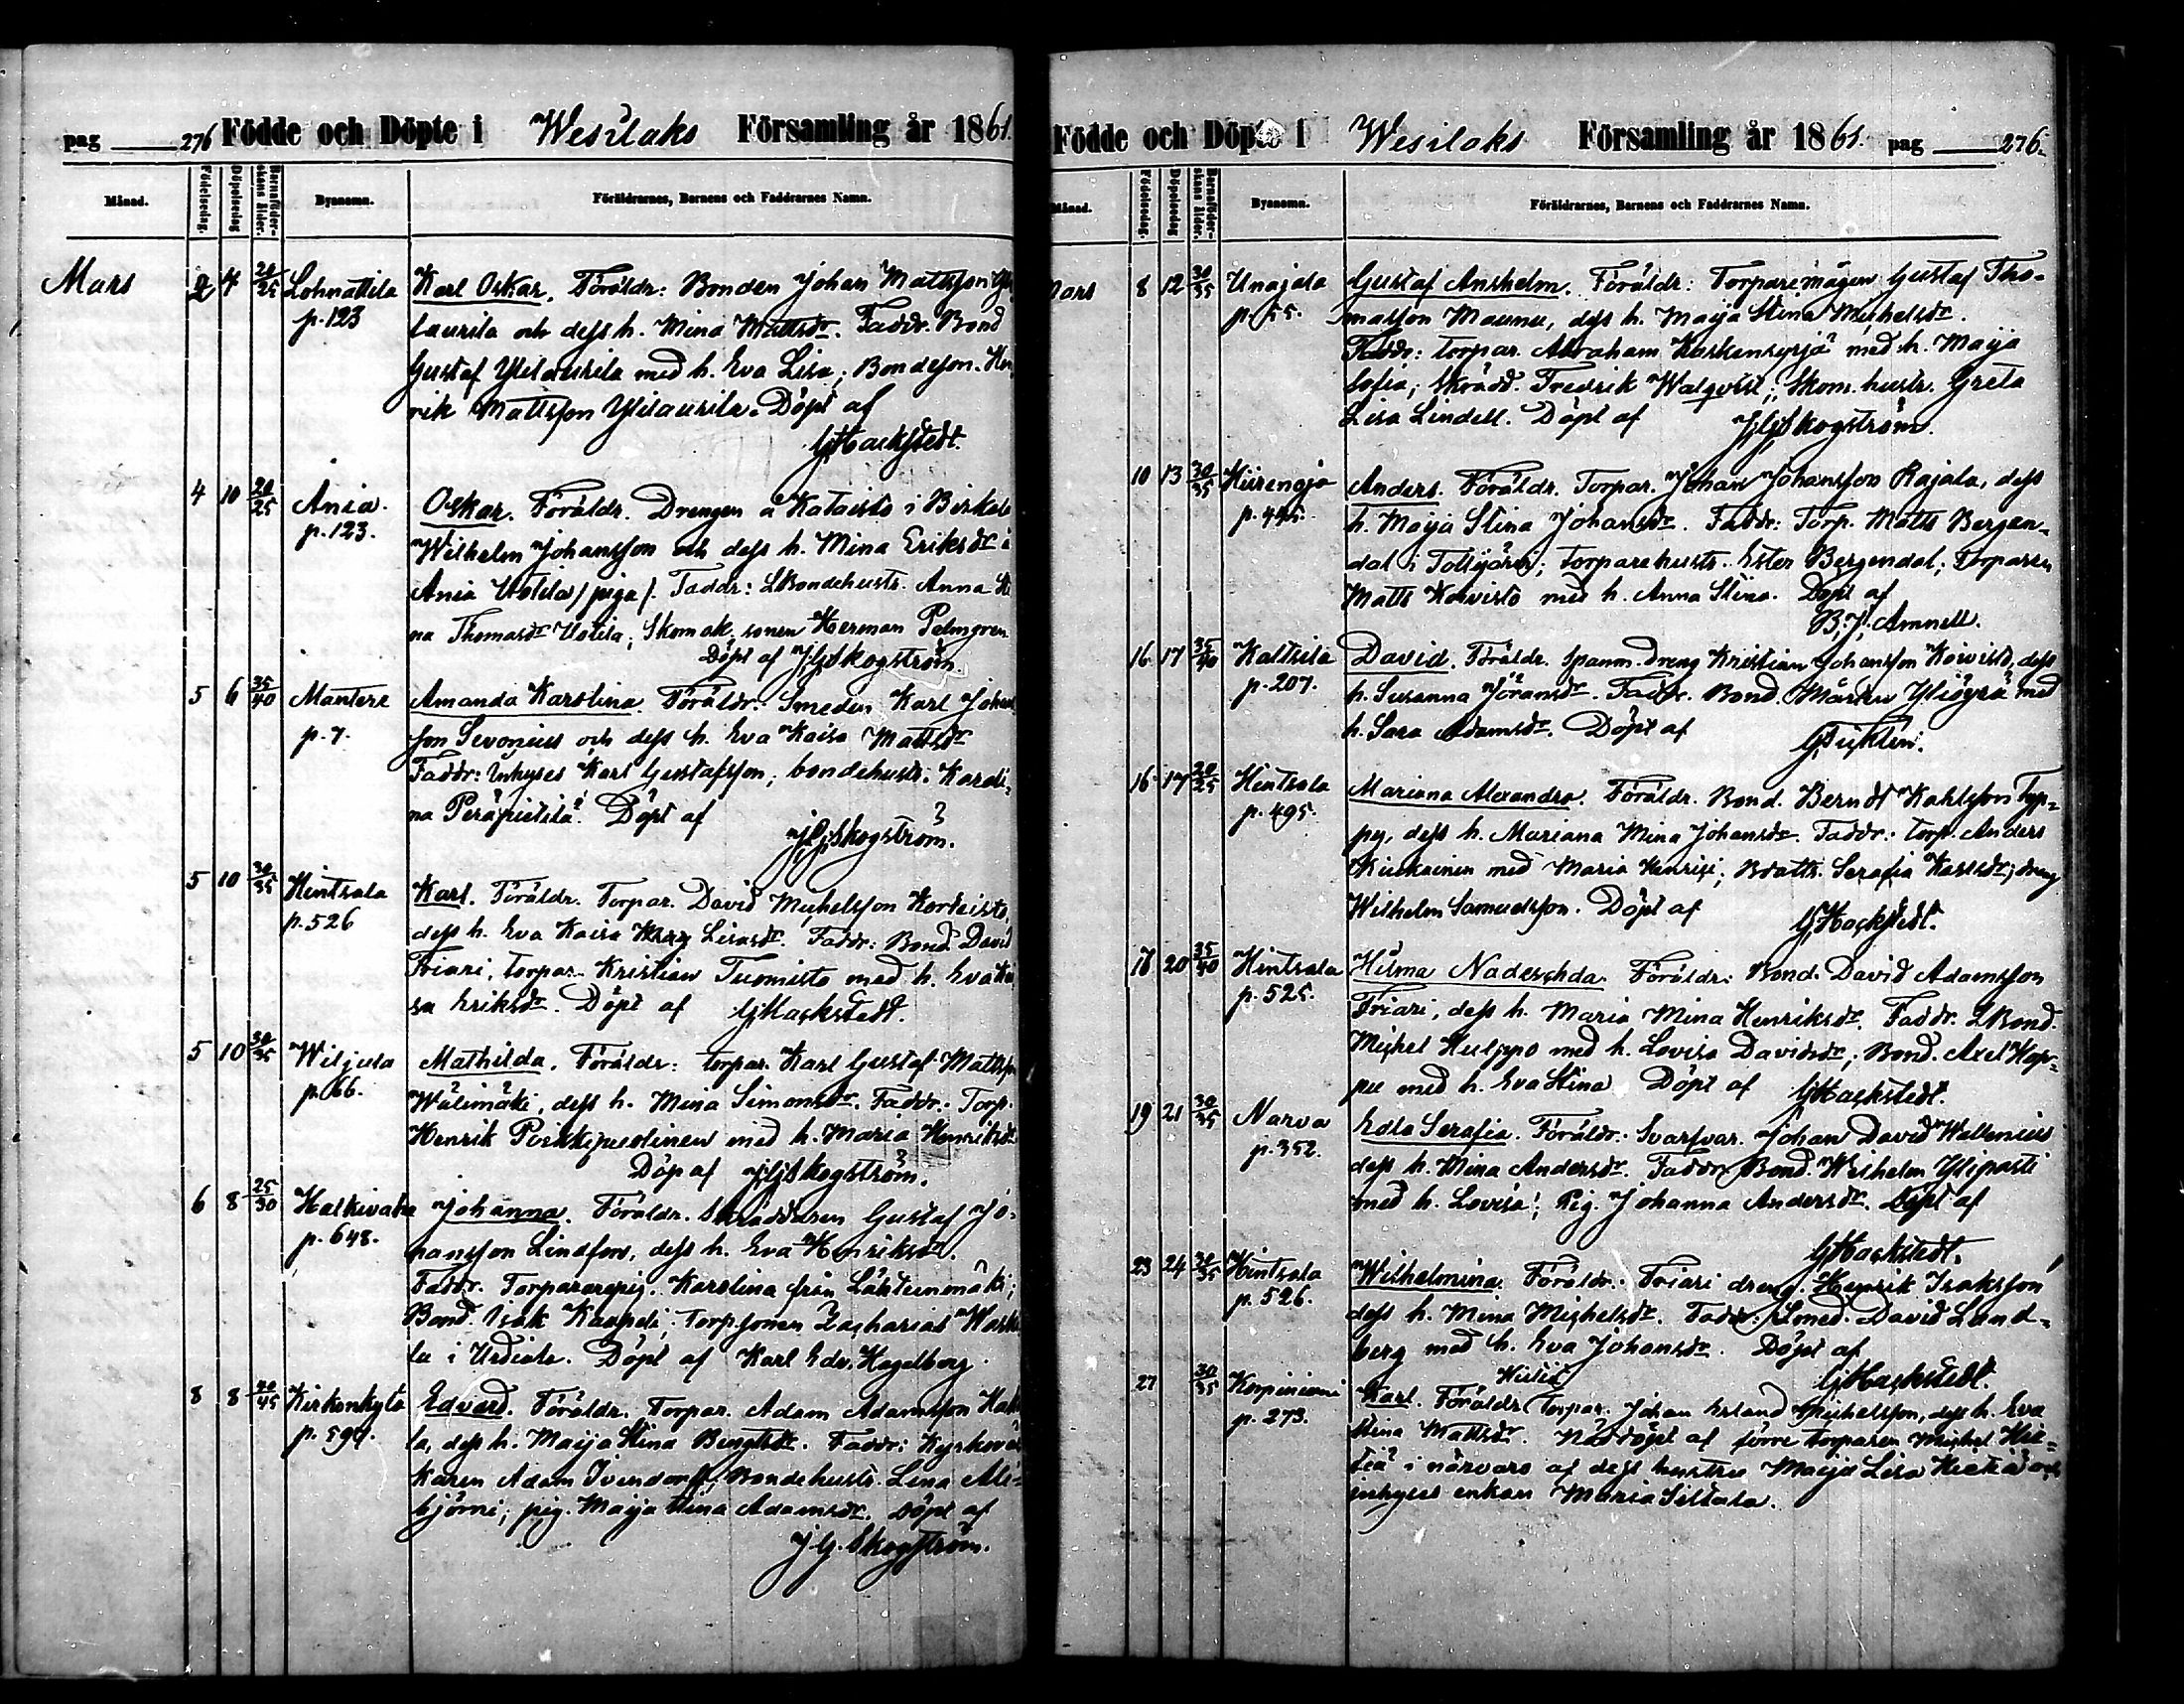 pag 276 Födde och Döpte i Wesilaks Församling år 1861.
Månad. Födelsedag. Döpelsedag Barnaföder-skans ålder. Byanamn. Föräldrarnes, Barnens och Faddrarnes Namn.
Mars 2 4 20/25 Lohnattila Karl Oskar. Föräldr: Bonden Johan Mattsson
p. 123 laurila och dess h. Mina Mattsdr. Faddr. Bond
Gustaf Ylilaurila med h. Eva Lisa; Bondeson. Hen
rik Mattsson Ylilaurila. Döpt af
G. Hackstedt.
4 10 20/25 Ania. Oskar. Föräldr. Drengen å Kataisto i Birkala
p. 123. Wilhelm Johansson och dess h. Mina Eriksdr i
Ania Uotila /piga/. Faddr: LBondehustr. Anna Sti
na Thomasdr Uotila; Skomak. sonen Herman Palmgren
Döpt af J.G. Skogström.
5 6 35/40 Mantere Amanda Karolina. Föräldr: Smeden Karl Johans
p. 7. son Sevonius och dess h. Eva Kaisa Mattsdr
Faddr: Inhyses Karl Gustafsson; bondehustr. Karoli-
na Peräpietilä. Döpt af
J.G. Skogström.
5 10 30/35 Hintsala Karl. Föräldr. Torpar. David Michelsson Korteisto,
p. 526 dess h. Eva Kaisa Lisasdr. Faddr: Bond. David
Friari, torpar. Kristian Tuomisto med h. Eva Kai
sa Eriksdr. Döpt af G. Hackstedt.
5 10 30/35 Wiljula Mathilda. Föräldr: torpar. Karl Gustaf Mattss
p. 66. Wälimäki, dess h. Mina Simonsdr. Faddr.: Torp.
Henrik Poikkipuolinen med h. Maria Henriksdr
Döp af J.G. Skogström.
6 8 25/30 Halkivaha Johanna. Föräldr. Skräddaren Gustaf Jo-
p. 648. hansson Lindfors, dess h. Eva Henriksdr.
Faddr. Torpararepig. Karolina från Lähteenmäki;
Bond. Isak Kaapeli; Torpsonen Zacharias
la i Urdiala. Döpt af Karl Edv. Hagelberg.
8 8 40/45 Kirkonkylä Edvard. Föräldr. Torpar. Adam Adamsson Hak
p. 594. la, dess h. Maija Stina Bengtsdr. Faddr: Kyrkovak
karen Adam Ivendorff, Bondehustr. Lena Ali-
björni; pig. Maija Stina Adamsdr. Döpt af
J.G. Skogström.
Födde och Döpte i Wesilaks Församling år 1861. pag 276.
Månad. Födelsedag. Döpelsedag Barnaföder-skans ålder. Byanamn. Föräldrarnes, Barnens och Faddrarnes Namn.
Mars 8 12 30/35 Unajala Gustaf Anshelm. Föräldr: Torparemågen Gustaf Tho-
p. 55. masson Maunu, dess h. Maija Stina Michelsdr.
Faddr: torpar. Abraham Koskensyrjä med h. Maija
Sofia; Skrädd. Fredrik Walqvist; Skom. hustr. Greta
Lisa Lindell. Döpt af J.G. Skogström.
10 13 30/35 Hiirenoja Anders. Föräldr. Torpar. Johan Johansson Rajala, dess
p. 445. h. Maija Stina Johansdr. Faddr: Torp. Matts Bergen-
dal i Tottijärvi; torparehustr. Ester Bergendal; Torparen
Matts Koivisto med h. Anna Stina. Döpt af
B.J. Amnell.
16 17 35/40 Kaltsila David. Föräldr. Spanm. dreng Kristian Johansson Koivisto, dess
p. 207. h. Susanna Jöransdr. Faddr. Bond. Mårten Yliöyrä med
h. Sara Adamsdr. Döpt af
16 17 20/25 Hintsala Mariana Alexandra. Föräldr. Bond. Berndt Karlsson Typ-
p. 495. py, dess h. Mariana Mina Johansdr. Faddr.: torp. Anders
Kiukainen med Maria Henrici; Bdattr. Serafia Karlsdr; dreng
Wilhelm Samuelsson. Döpt af G. Hackstedt.
18 20 35/40 Hintsala Hilma Nadeschda. Föräldr: Bond. David Adamsson
p. 525. Friari, dess h. Maria Mina Henriksdr. Faddr. LBond.
Michel Hulppo med h. Lovisa Davidsdr; Bond. Axel Hop-
pu med h. Eva Stina Döpt af G. Hackstedt.
19 21 30/35 Narva Edla Serafia. Föräldr: Svarfvar. Johan David Wallenius
p. 352. dess h. Mina Andersdr. Faddr. Bond. Wilhelm Yliparti
med h. Lovisa; Pig. Johanna Andersdr. Döpt af
G. Hackstedt.
23 24 30/35 Hintsala Wilhelmina. Föräldr: Friari dreng. Henrik Isaksson
p. 526. dess h. Mina Michelsdr. Faddr: Smed. David Lund-
berg med h. Eva Johansdr. Döpt af
G. Hackstedt.
27 30/35 Korpiniemi Karl. Föräldr. Torpar. Johan Erland Michelsson, dess h. Eva
p. 273. Stina Mattsdr. Nöddöpt af förre torparen Michel Hie-
ta i närvaro af dess hustru Maija Lisa Hieta och
inhyses enkan Maria Siltala.